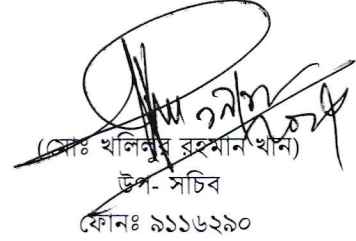 (মোঃ খলিলুর রহমান খান)
উপ- সচিব
ফোনঃ ৯১১৬২৯০